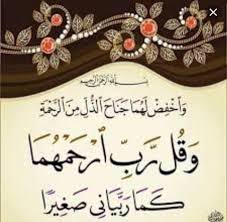 بسم الله الرحمن الرحيم
وَاخْفِضْ لَهُمَا جَنَاحَ الذُّلِّ مِنَ الرَّحْمَةِ
وَقُل رَّبِّ ارْحَمْهُمَا
كَمَا رَبَّيَانِي صَغِيرًا